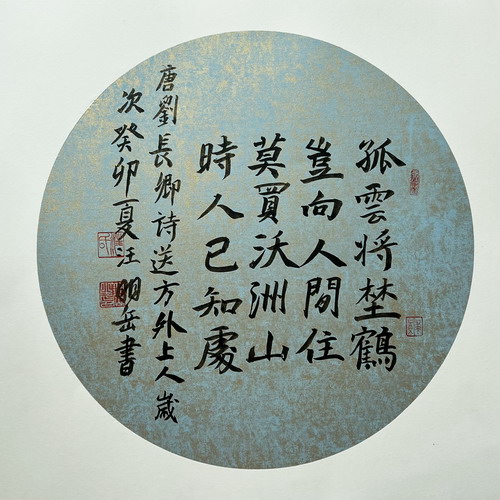 孤雲将埜鶴
豈向人間住
莫買沃洲山
時人已知處
唐劉長卿詩送方外上人歲
次癸卯夏汪明岳書